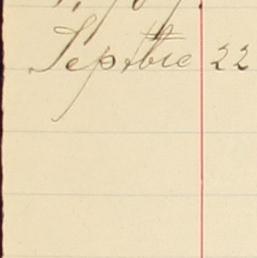 Septbre 22